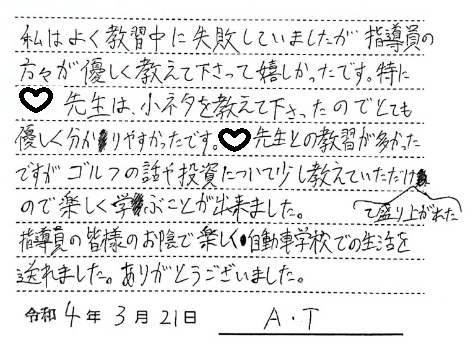 私はよく教習中に失敗していましたが 指導員の
方々が優しく教えて下さって嬉しかったです。特に
♡ 先生は、小ネタを教えて下さったのでとても
優しく分かりやすかったです。♡先生との教習が多かった
ですが ゴルフの話や投資について少し教えていただけ
て盛り上がれた
ので楽しく学ぶことが出来ました。
指導員の皆様のお陰で楽しく自動車学校での生活を
送れました。ありがとうございました。
令和 4 年 3 月 21 日 A・T